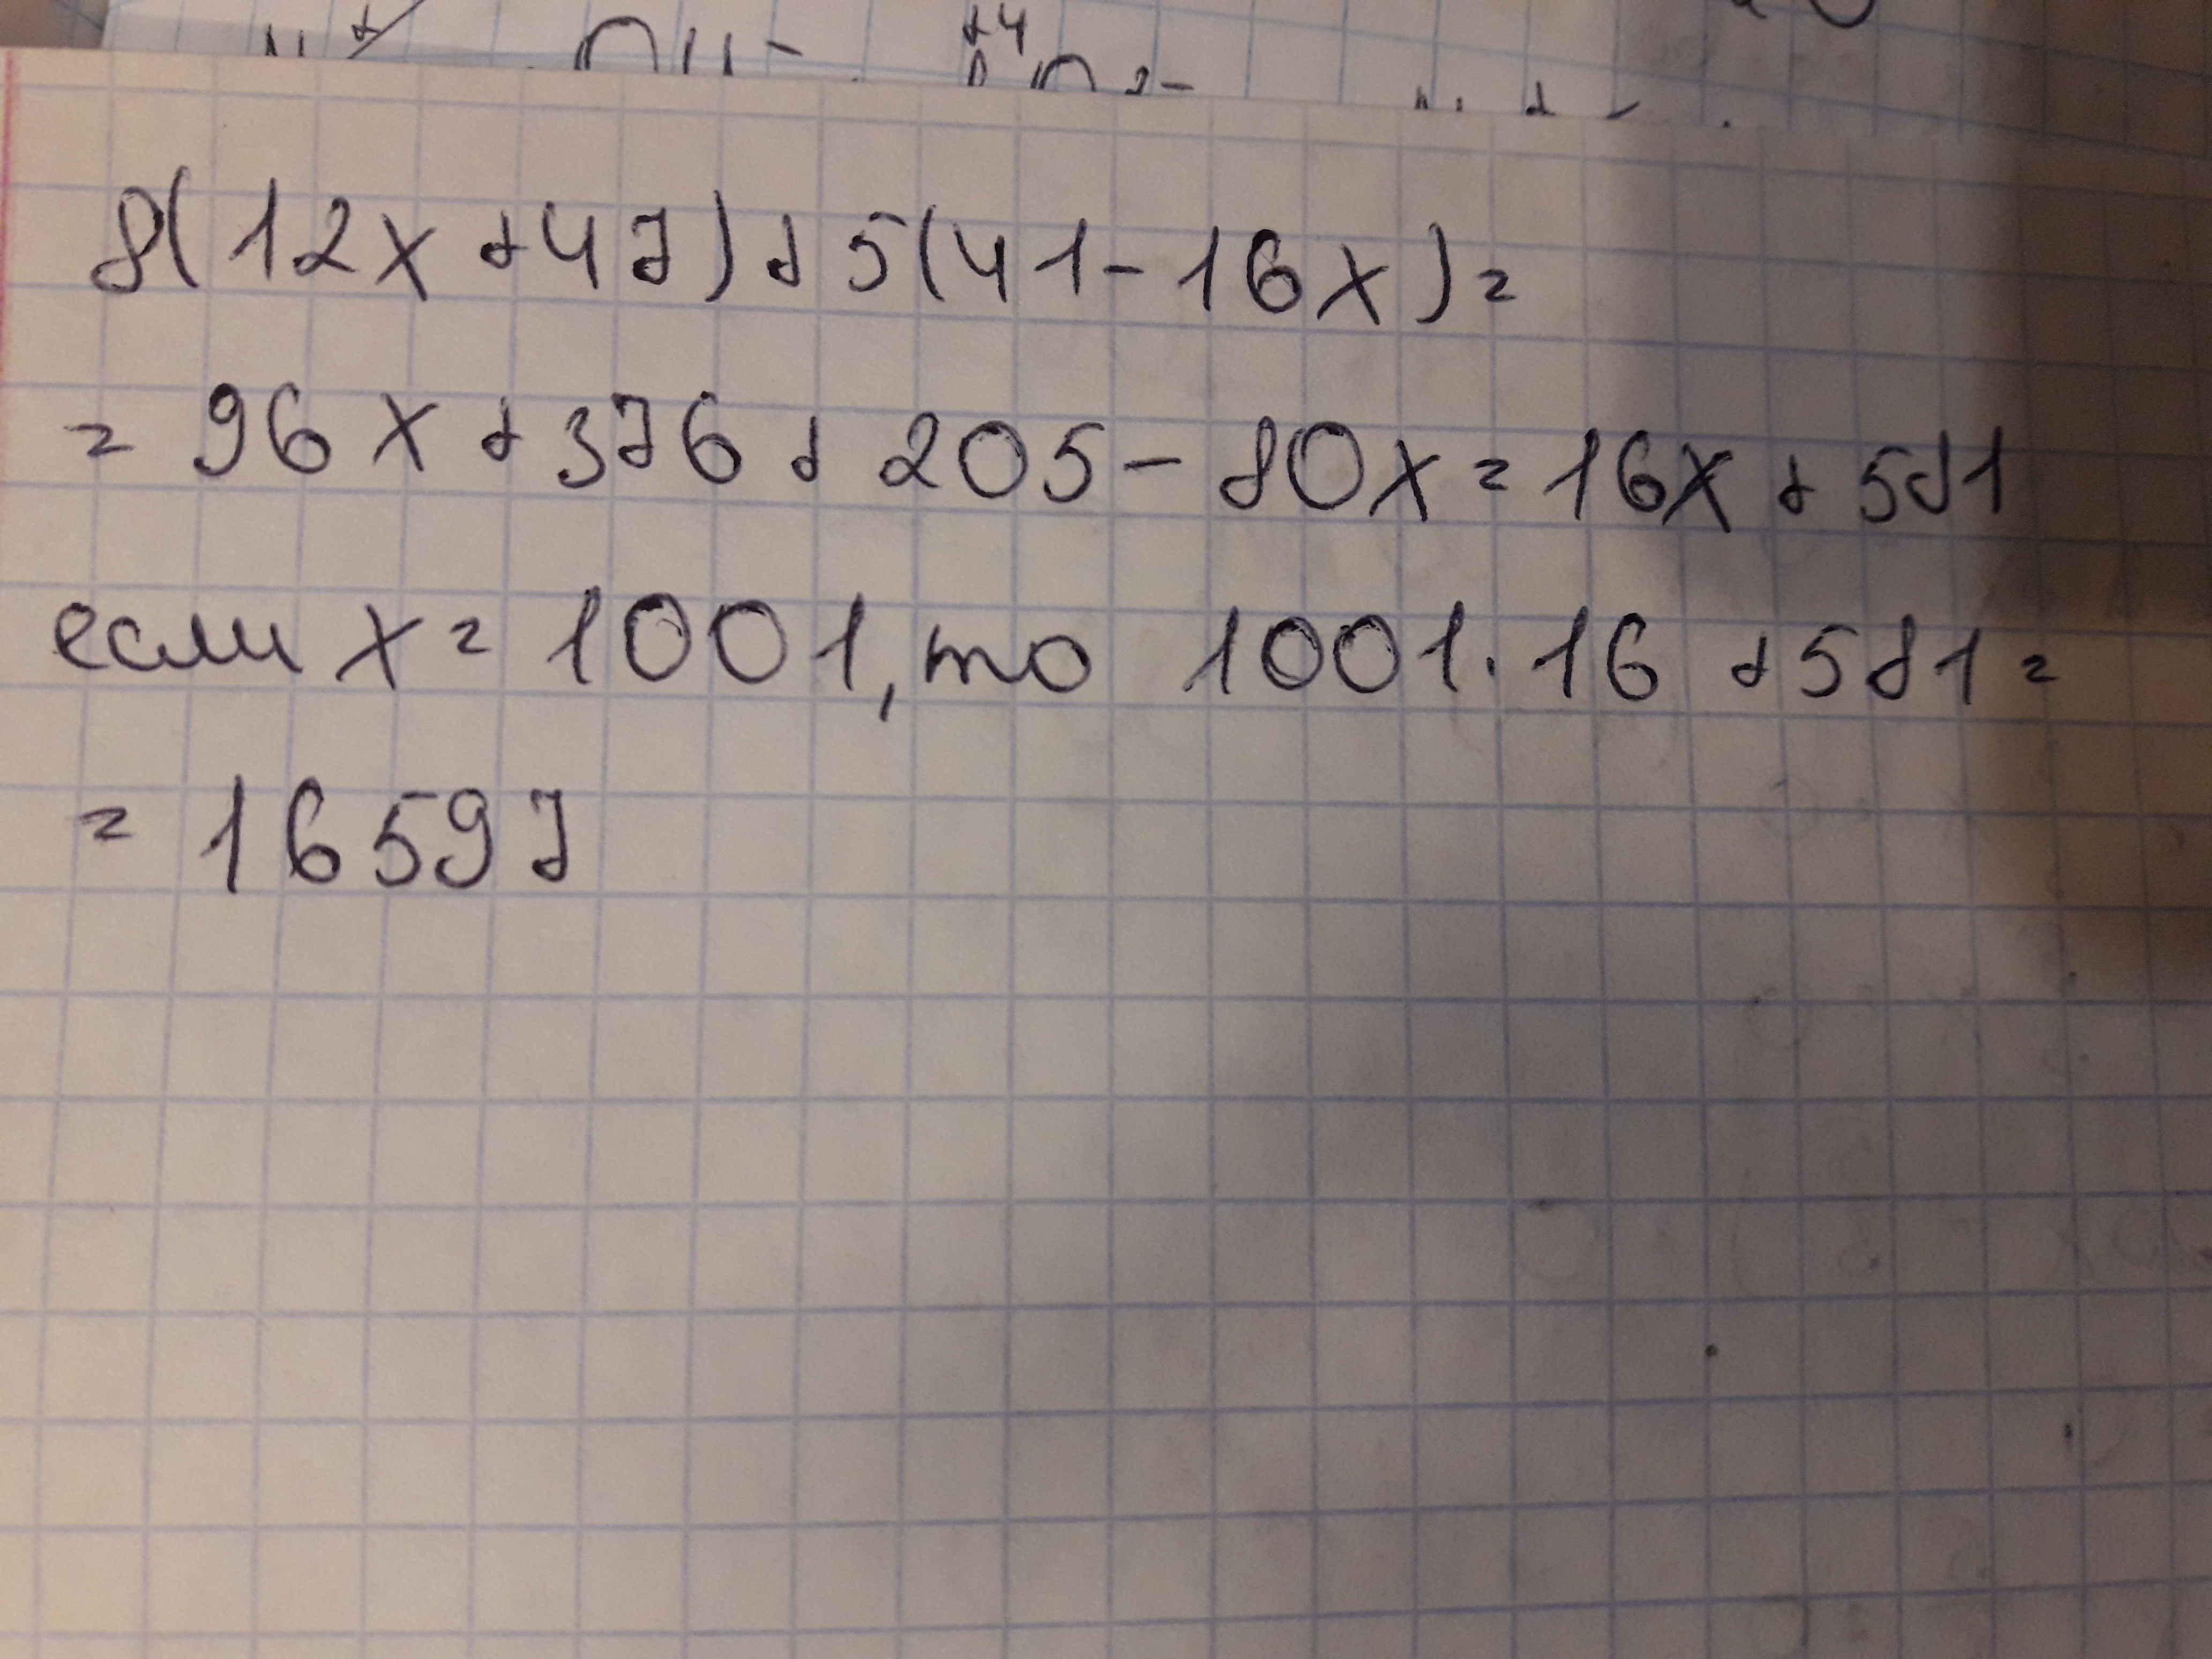 8(12x+47)+5(41-16x)=
=96x+376+205-80x=16x+581
если x=1001, то 1001·16+581=
=16597